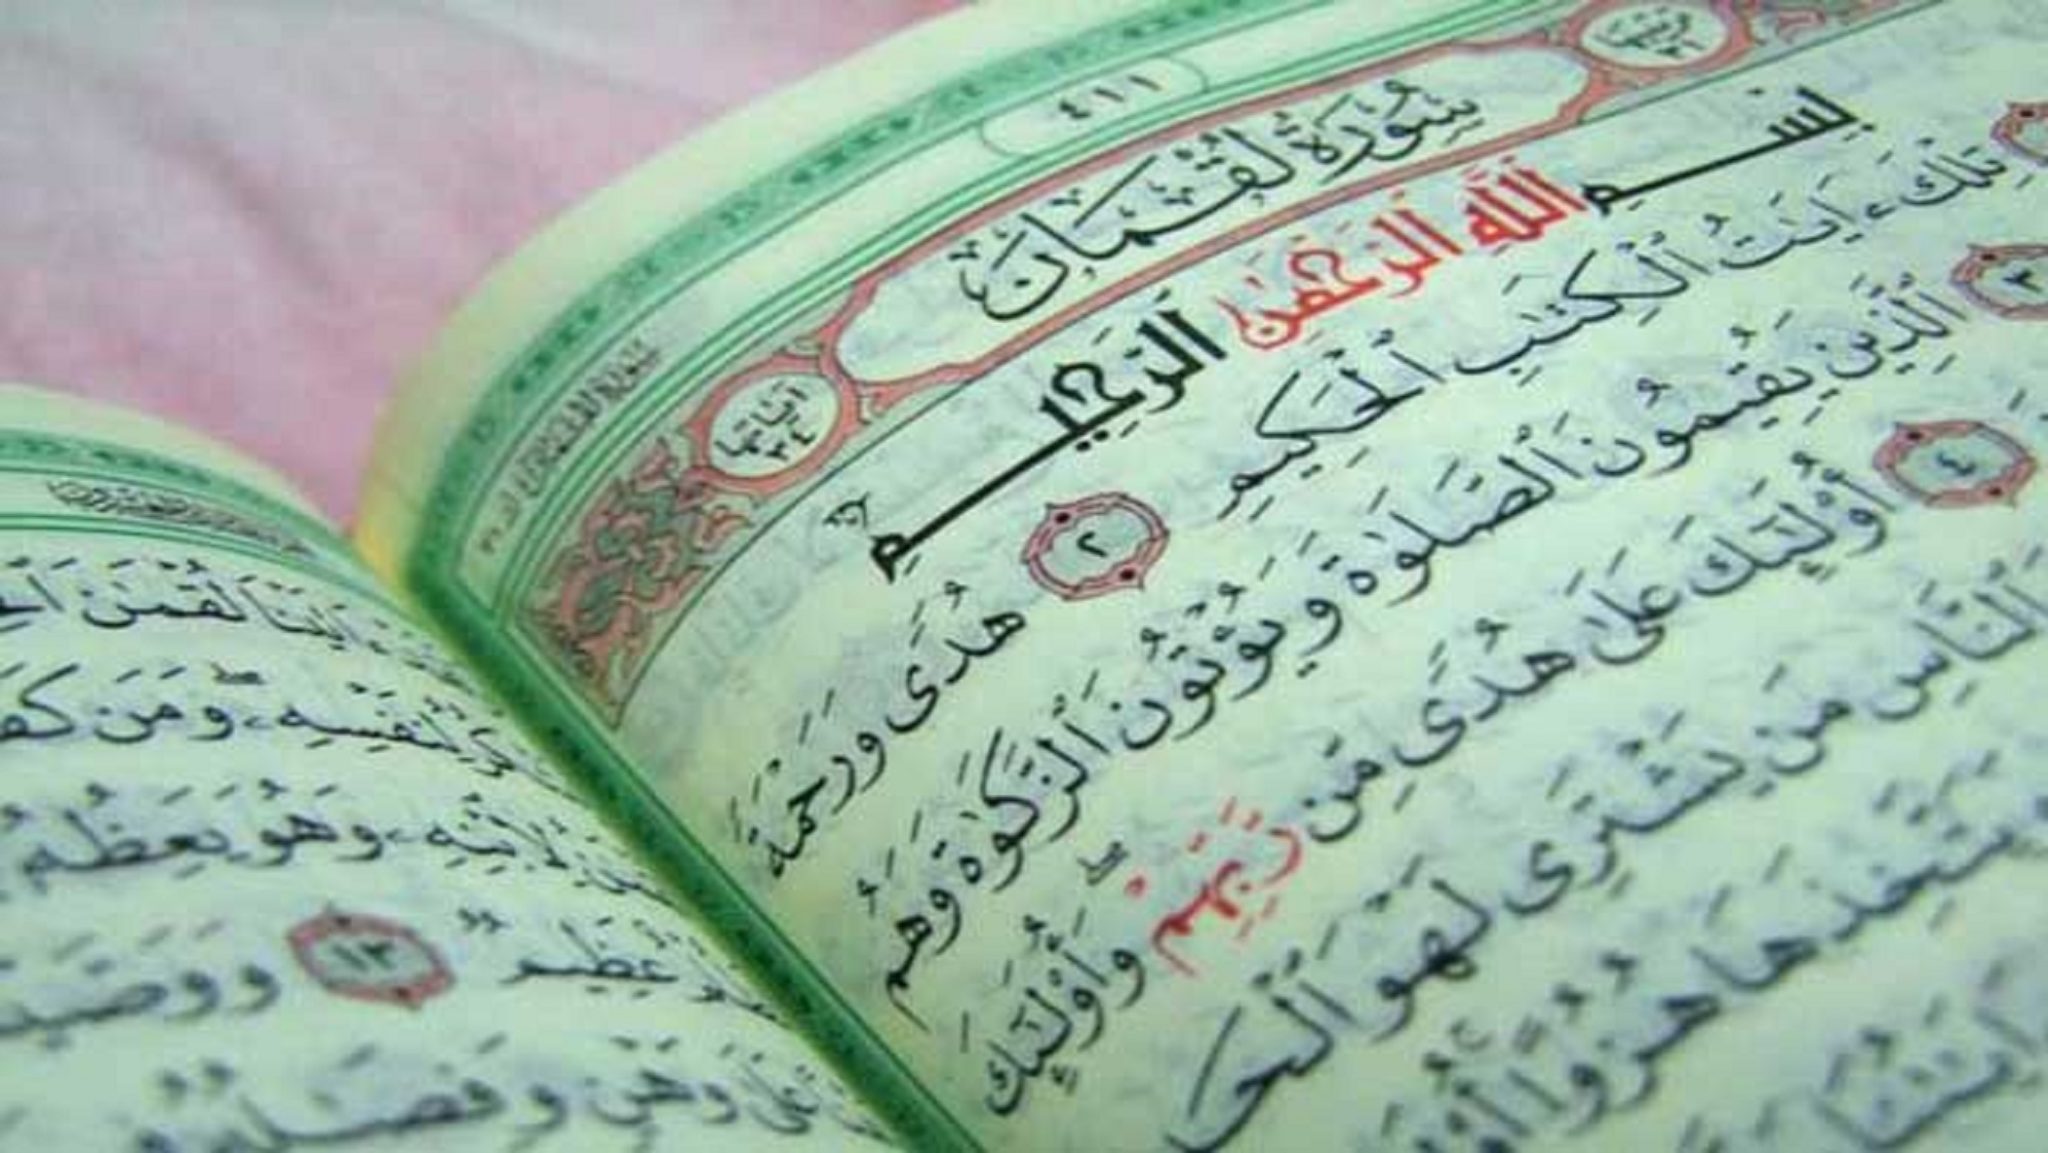 ٤١١
سُورَةُ لُقْمَانَ
آيَاتُهَا ٣٤
بِسْمِ اللَّهِ الرَّحْمَٰنِ الرَّحِيمِ
تِلْكَ ءَايَٰتُ ٱلْكِتَٰبِ ٱلْحَكِيمِ ٢ هُدًى وَرَحْمَةً
٣ ٱلَّذِينَ يُقِيمُونَ ٱلصَّلَوٰةَ وَيُؤْتُونَ ٱلزَّكَوٰةَ وَهُم
٤ أُو۟لَٰٓئِكَ عَلَىٰ هُدًى مِّن رَّبِّهِمْ ۖ وَأُو۟لَٰٓئِكَ
ٱلنَّاسِ مَن يَشْتَرِى لَهْوَ ٱلْحَ
هُزُوًا أُو۟
لُقْمَٰنَ
لِنَفْسِهِۦ ۖ وَمَن كَفَ
لِٱبْنِهِۦ وَهُوَ يَعِظُهُۥ
عَظِيمٌ ١٣ وَوَصَّيْ
وَهْنٍ وَفِصَٰلُهُۥ